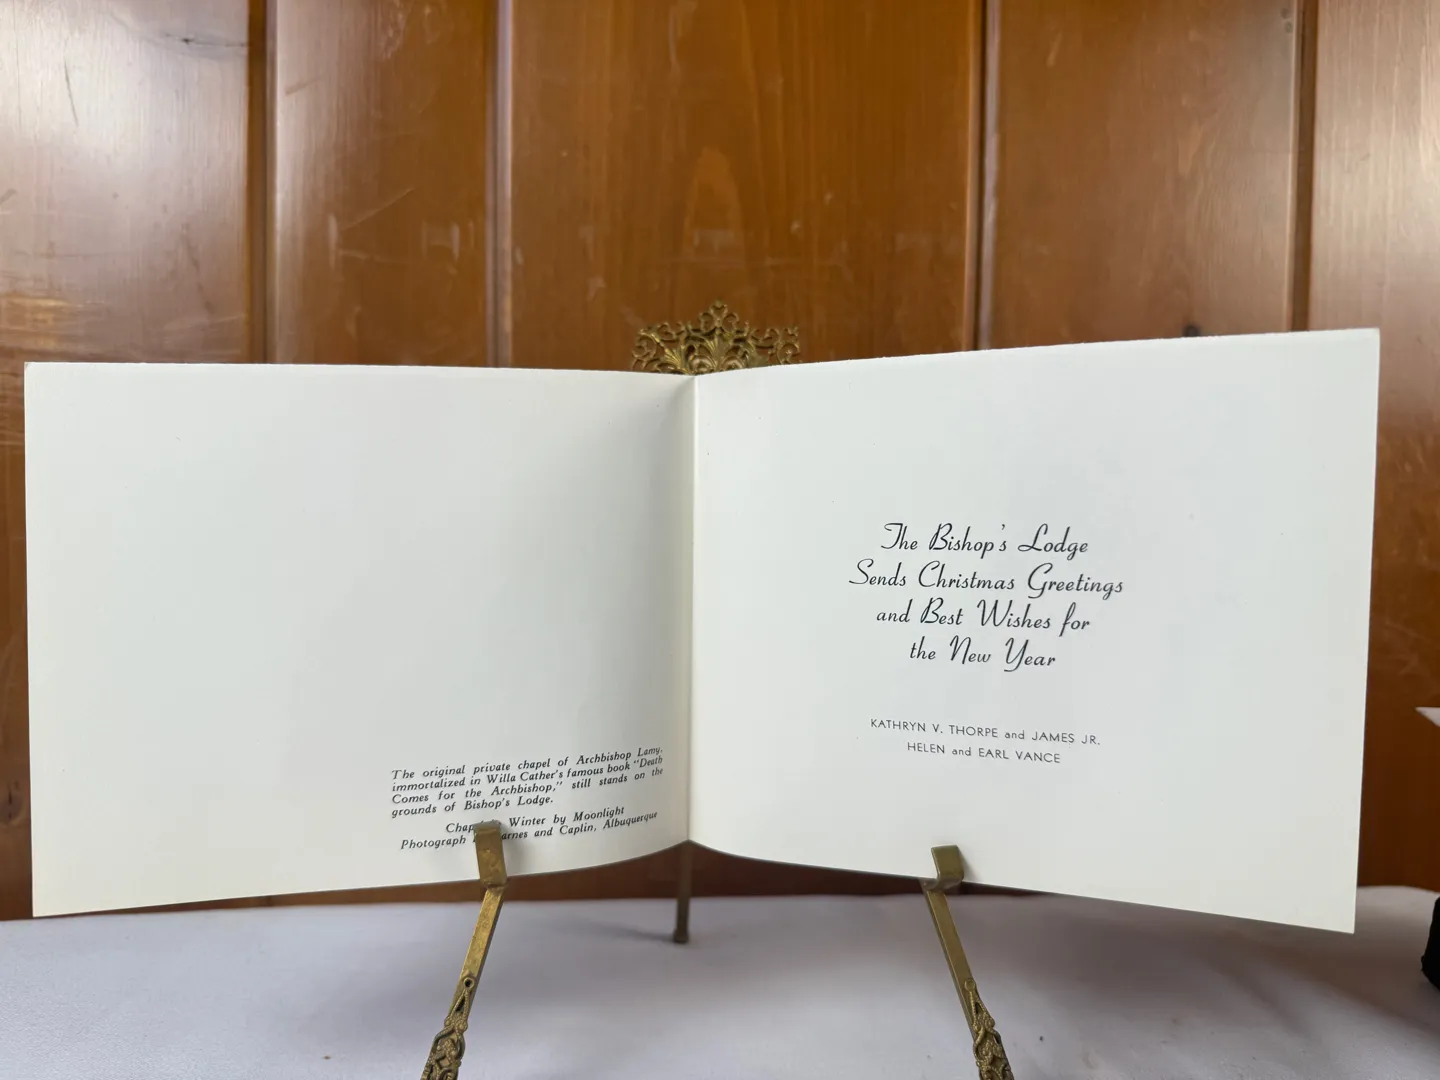 The original private chapel of Archbishop Lamy,
immortalized in Willa Cather's famous book "Death
Comes for the Archbishop," still stands on the
grounds of Bishop's Lodge.
Winter by Moonlight
Photograph and Caplin, Albuquerque
The Bishop's Lodge
Sends Christmas Greetings
and Best Wishes for
the New Year
KATHRYN V. THORPE and JAMES JR.
HELEN and EARL VANCE